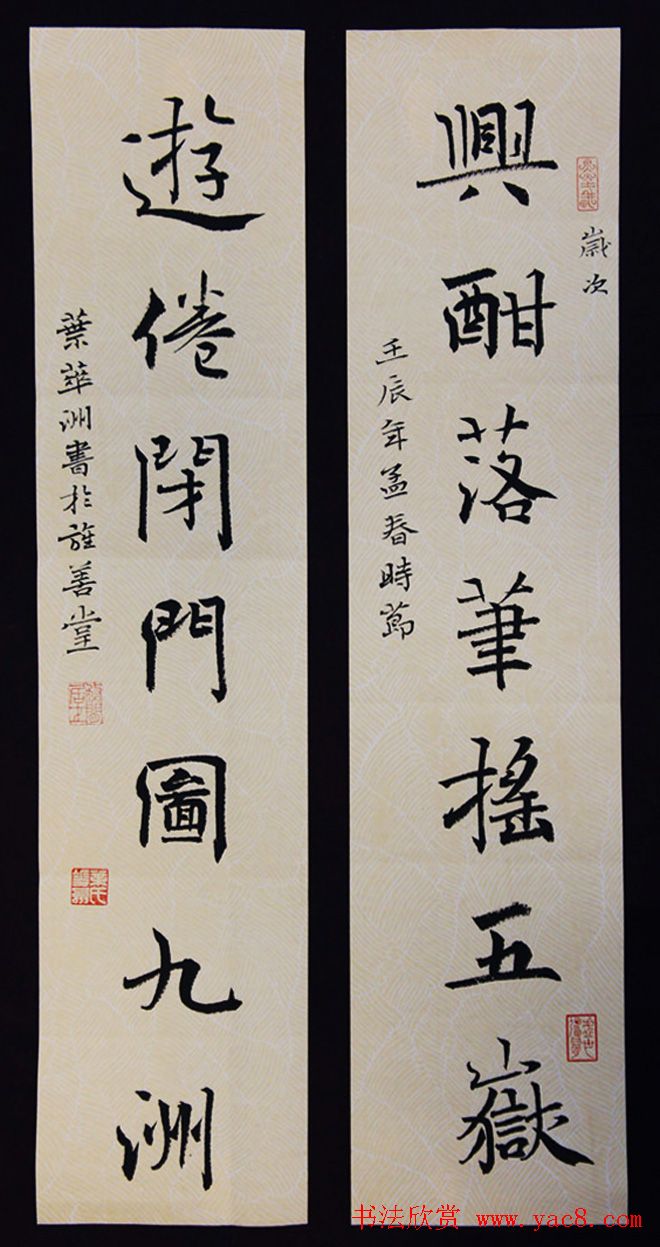 興酣落筆搖五嶽
歲次
壬辰年孟春時節
遊倦閉門圖九洲
葉華洲書於雒善堂
书法欣赏 www.yac8.com